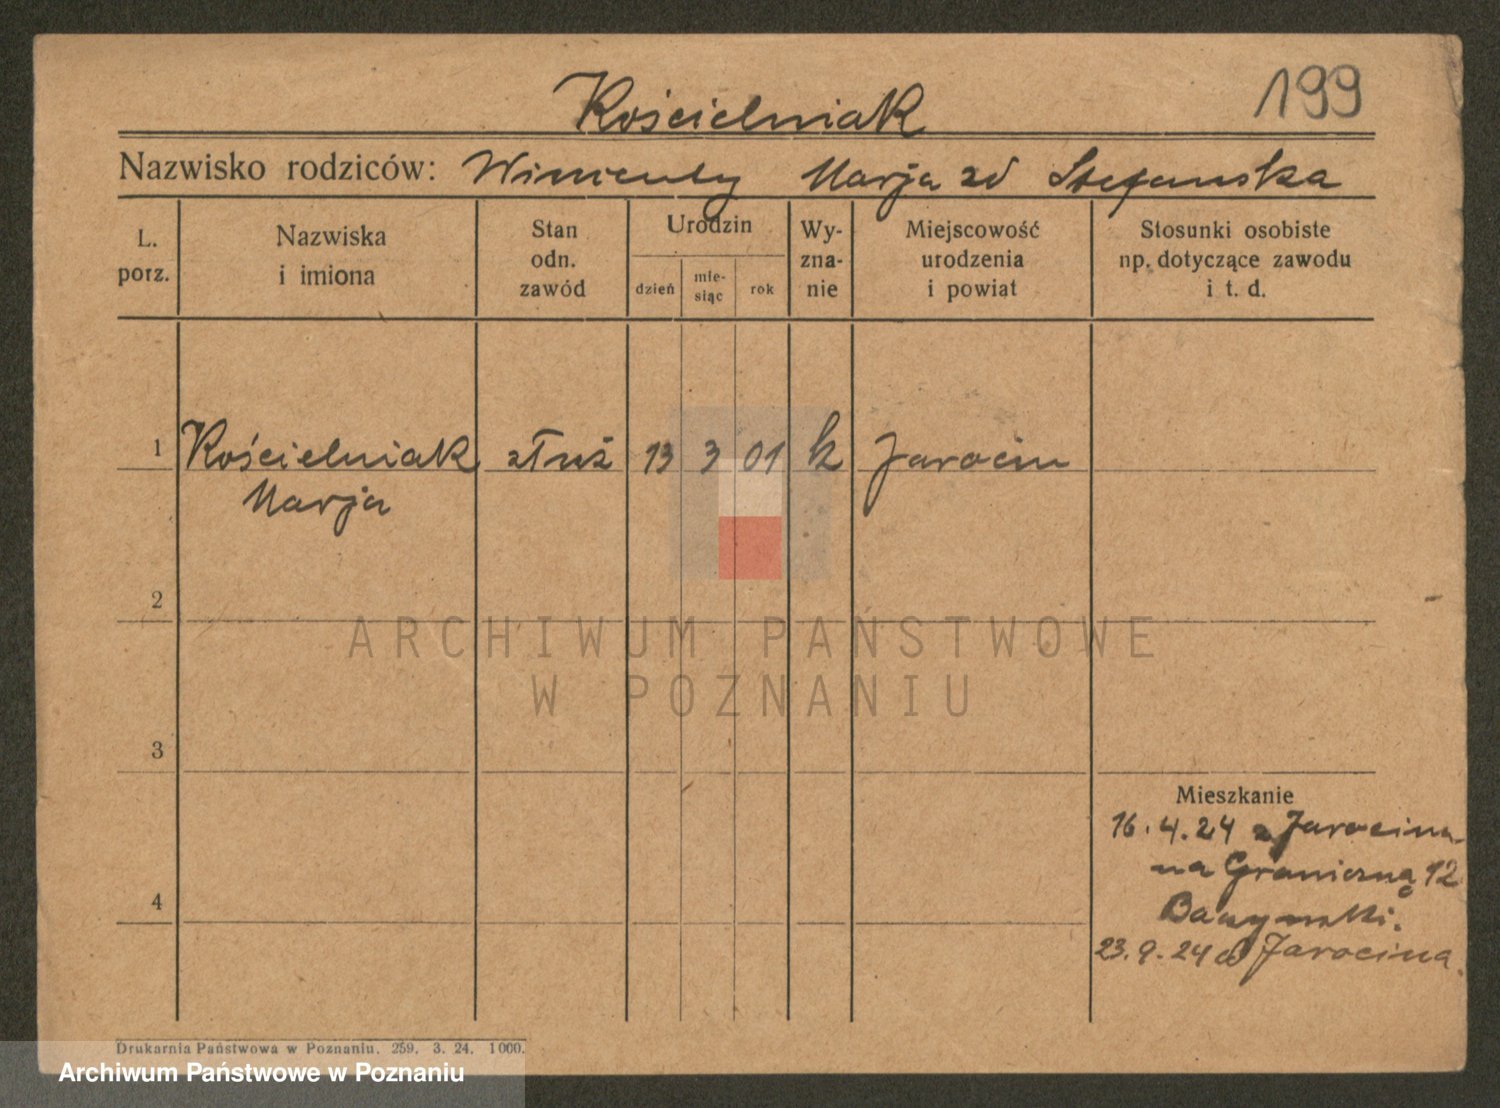 Kościelniak 199
Nazwisko rodziców: Wincenty Marja zd Stefańska
L.
porz.
Nazwiska
i imiona
Stan
odn.
zawód
Urodzin
dzień
mie-
siąc
rok
Wy-
zna-
nie
Miejscowość
urodzenia
i powiat
Stosunki osobiste
np. dotyczące zawodu
i t. d.
1 Kościelniak służ 13 3 01 k Jarocin
Marja
2
3
4
Mieszkanie
16.4.24 z Jarocina
na Graniczną 12
23.9.24 d Jarocina.
Drukarnia Państwowa w Poznaniu. 259. 3. 24. 1000.
ARCHIWUM PAŃSTWOWE
W POZNANIU
Archiwum Państwowe w Poznaniu